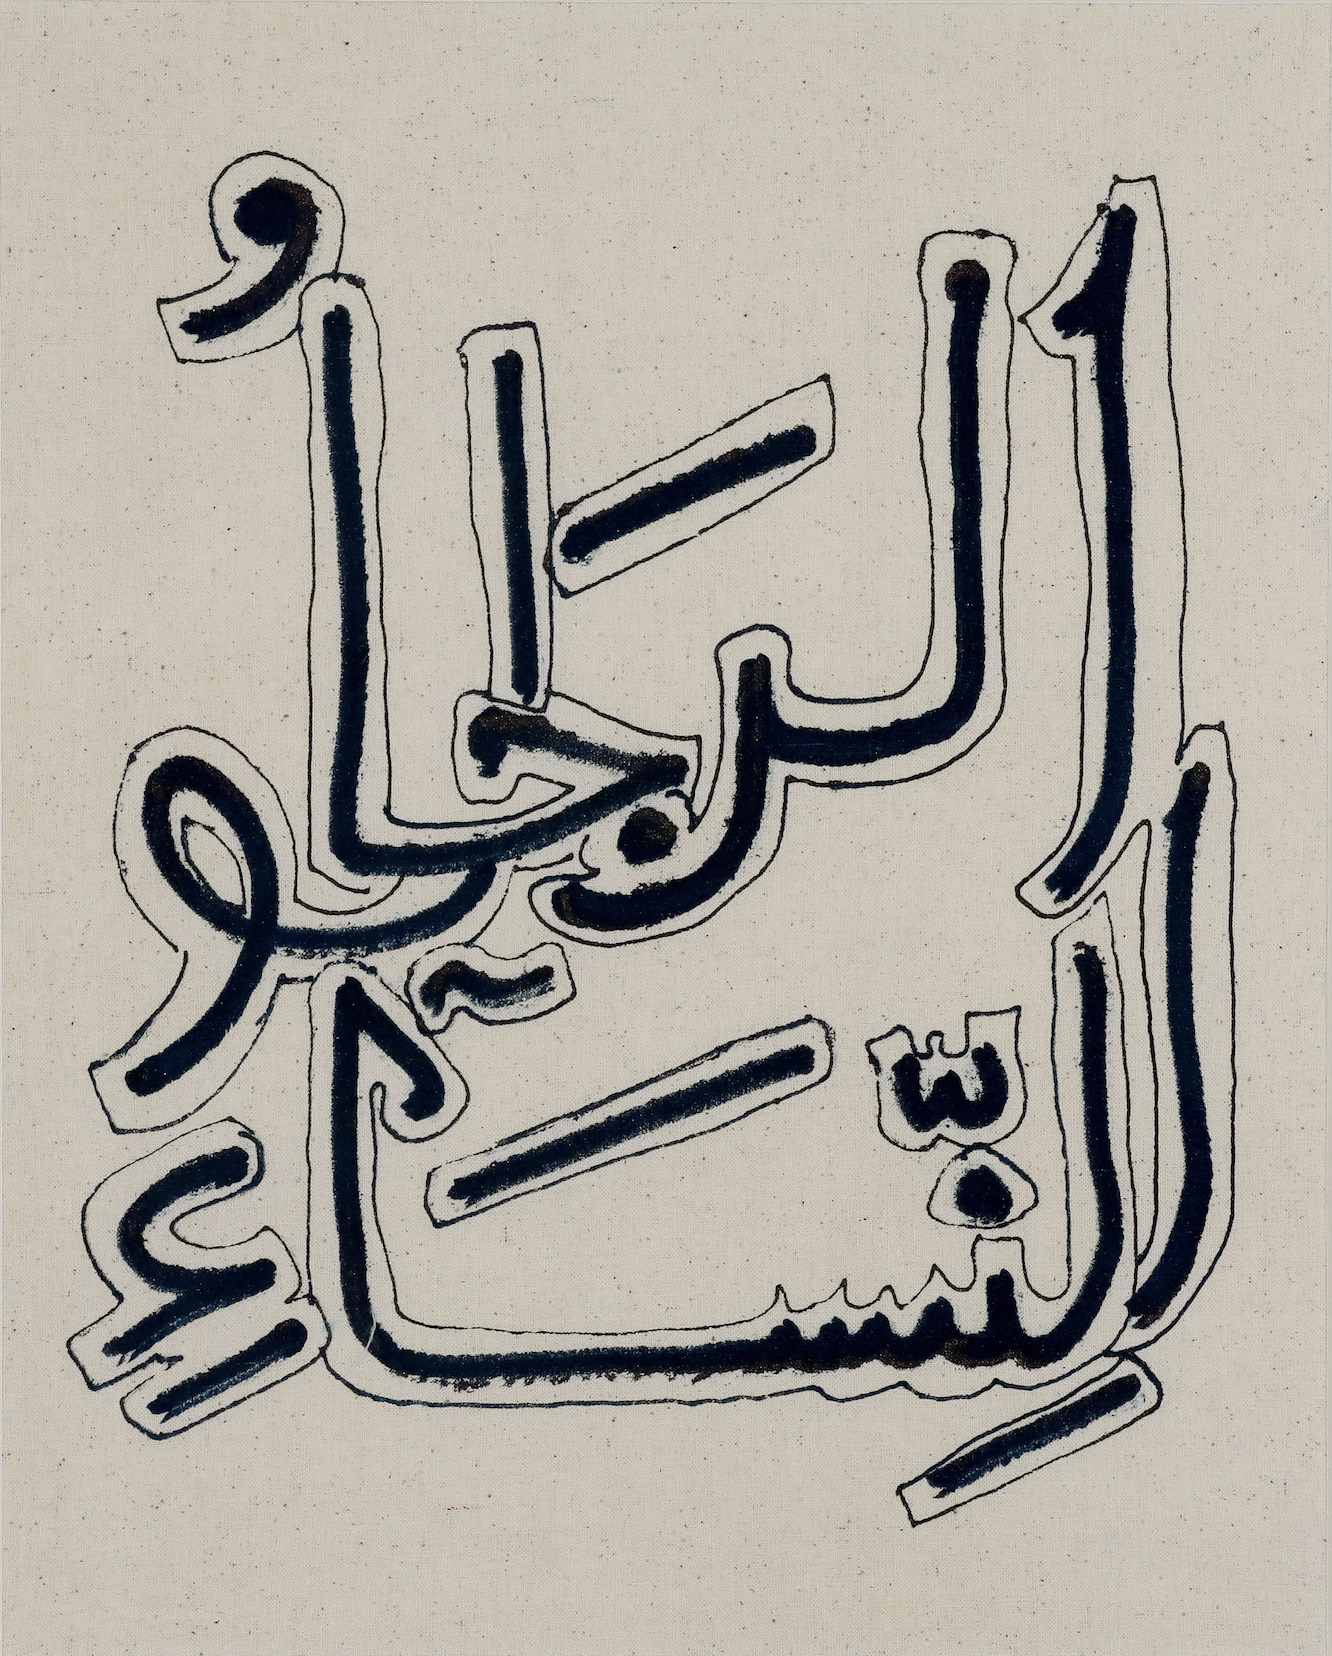 الرجَالُ و
النِّسَآءِ